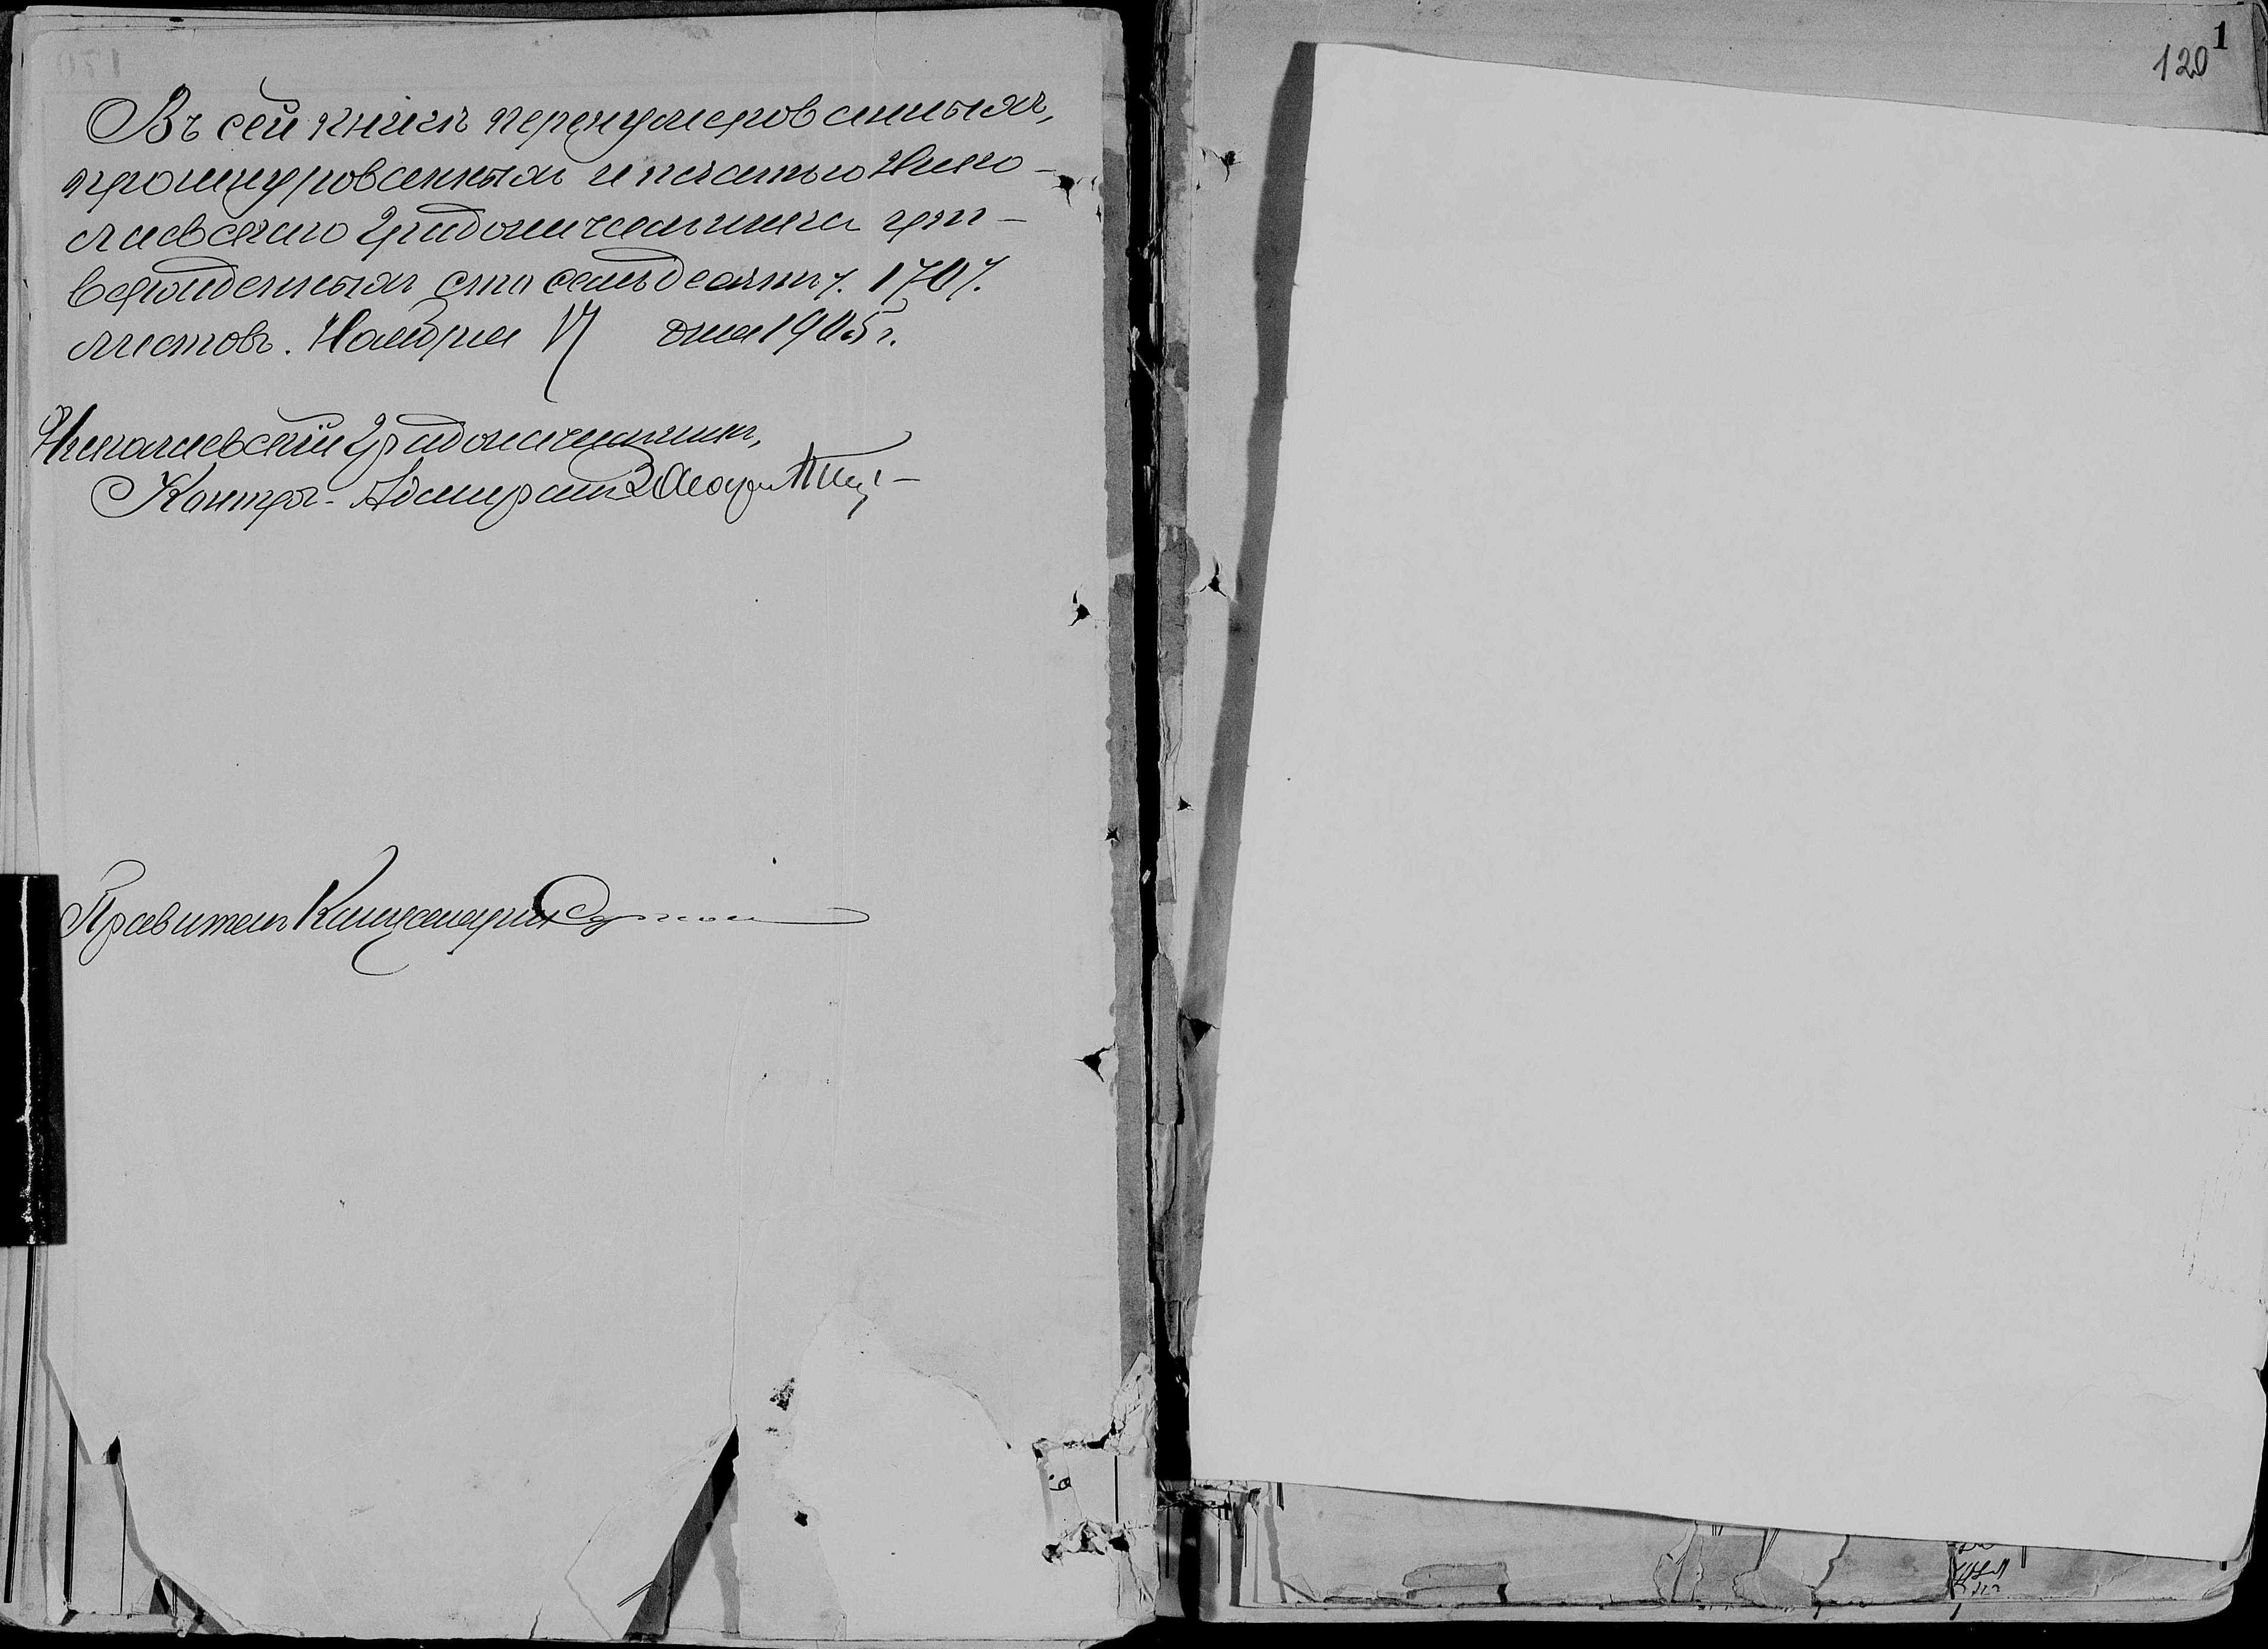 Въ сей книгѣ перенумерованныхъ,
прошнурованныхъ и печатью Нико-
лаевскаго Градоначальника ут-
вержденныхъ сто семьдесятъ /. 170 /.
листовъ. Ноября дня 1905 г.
Николаевскій Градоначальникъ,
Контръ-Адмиралъ
Правитель Канцеляріи
1
120